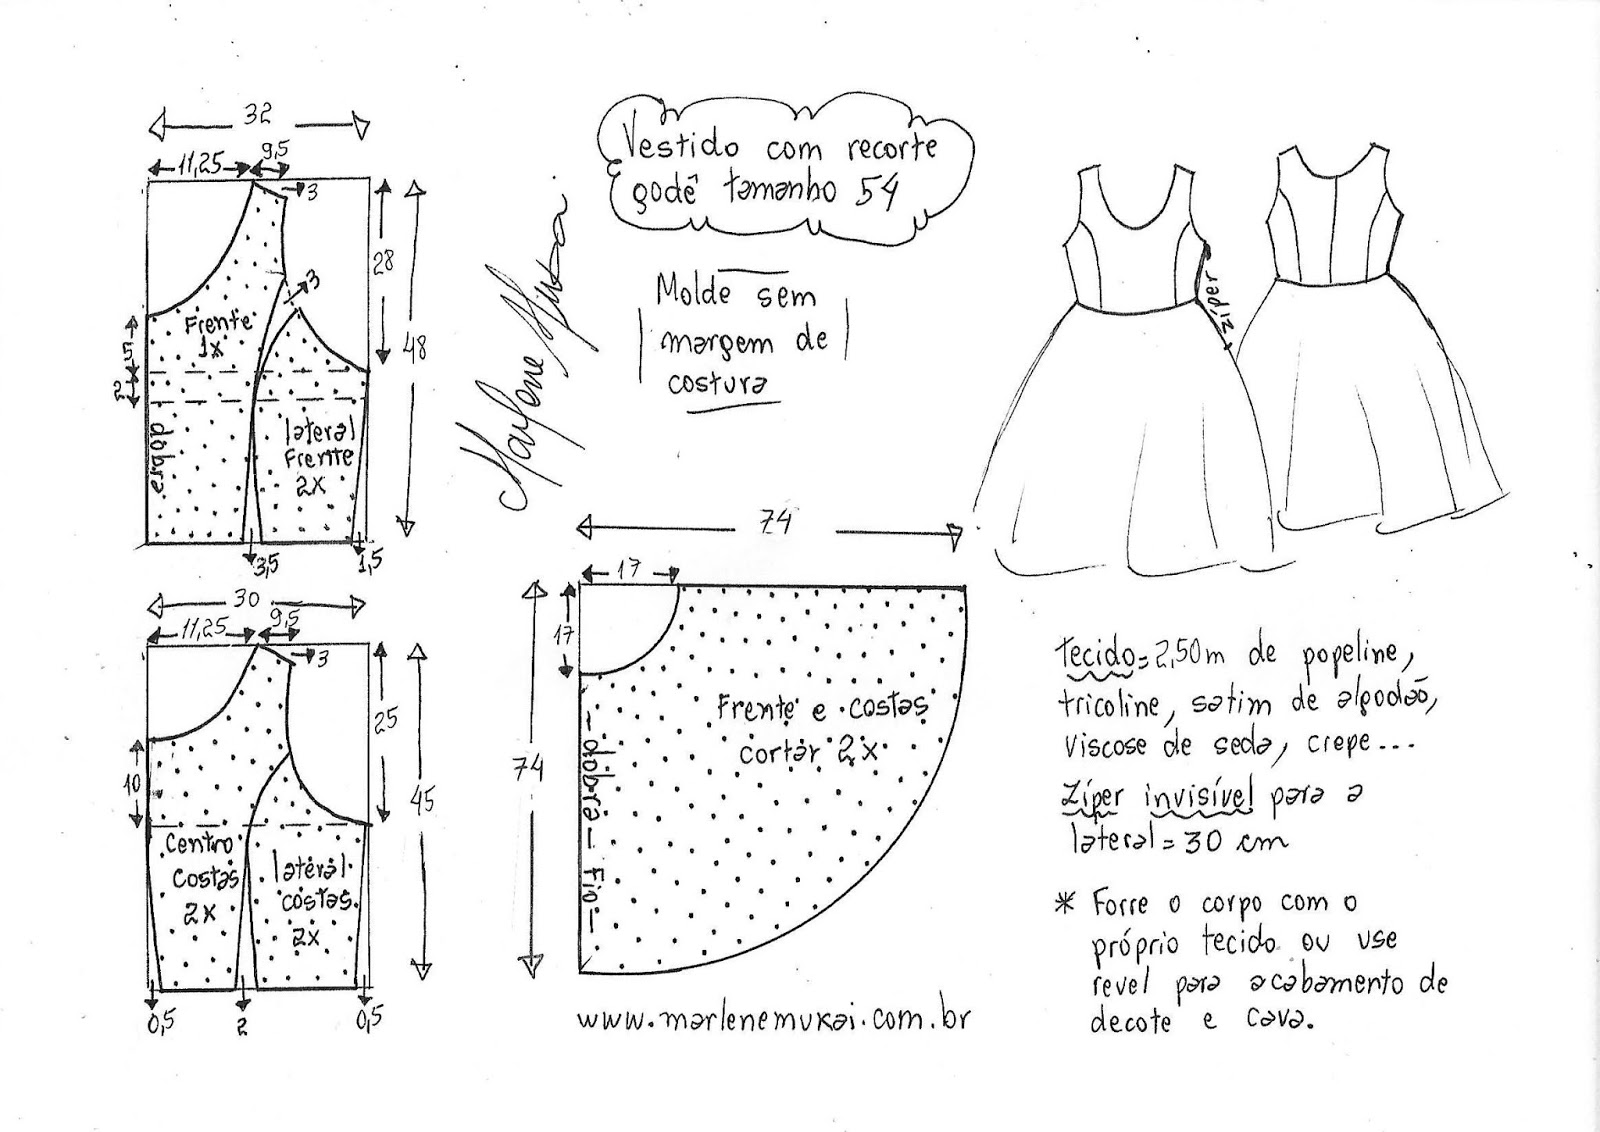 Vestido com recorte
godê tamanho 54
Molde sem
margem de
costura
32
11,25
9,5
3
28
48
3
Frente
1x
5
2
dobra
lateral
Frente
2x
3,5
1,5
30
11,25
9,5
3
25
45
10
Centro
costas
2x
lateral
costas
2x
0,5
2
0,5
Marlene Mukai
74
17
17
74
Frente e costas
cortar 2x
dobra - Fio
www.marlenemukai.com.br
zíper
tecido = 2,50m de popeline,
tricoline, satim de algodão,
viscose de seda, crepe...
Zíper invisível para a
lateral = 30 cm
* Forre o corpo com o
próprio tecido ou use
revel para acabamento de
decote e cava.